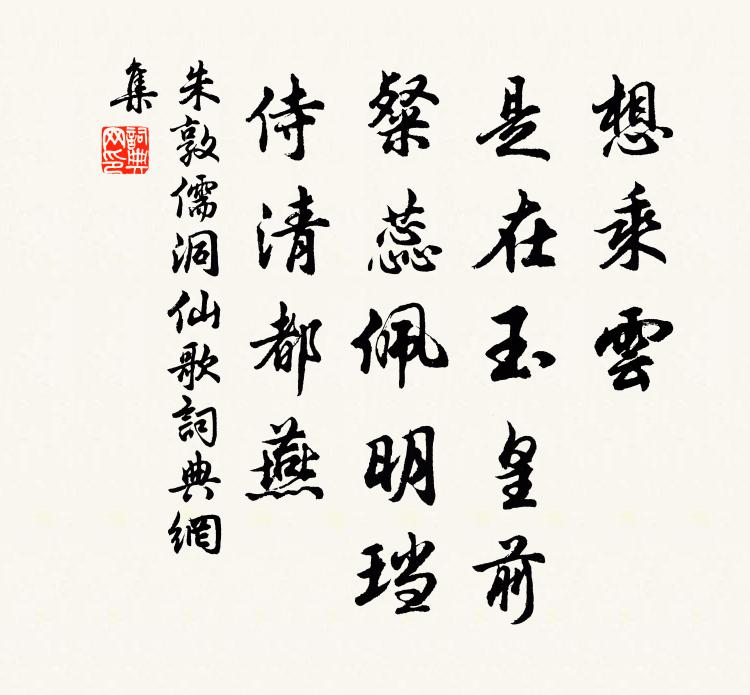 想乘雲
是在玉皇前
粲蕊佩明珰
侍清都燕
朱敦儒洞仙歌詞典網
集
詞典网印